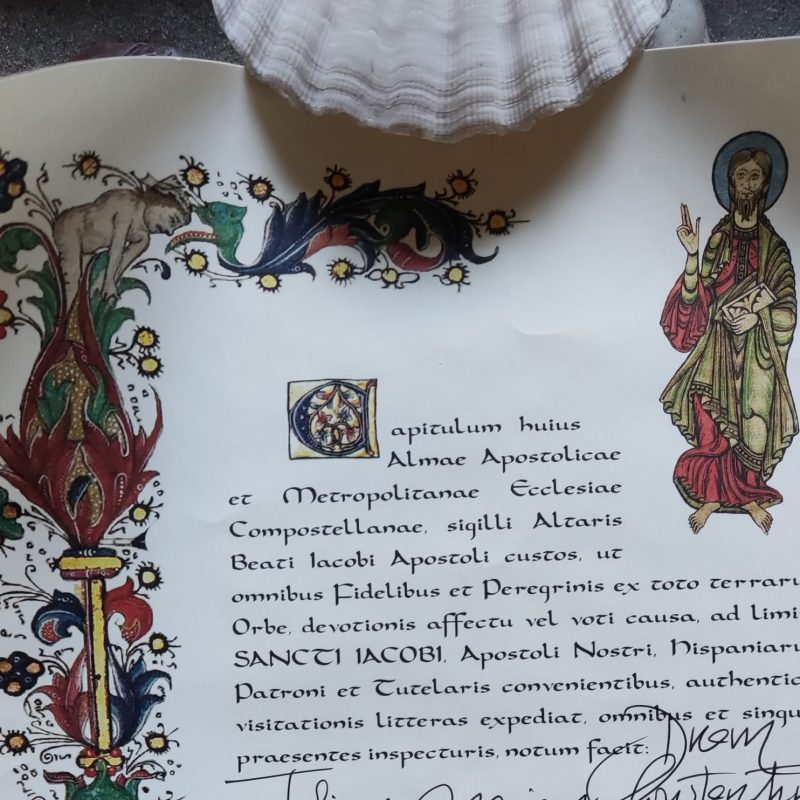 Capitulum huius
Almae Apostolicae
et Metropolitanae Ecclesiae
Compostellanae, sigilli Altaris
Beati Iacobi Apostoli custos, ut
omnibus Fidelibus et Peregrinis ex toto terraru
Orbe, devotionis affectu vel voti causa, ad limi
SANCTI IACOBI, Apostoli Nostri, Hispaniaru
Patroni et Tutelaris convenientibus, authentic
visitationis litteras expediat, omnibus et singu
praesentes inspecturis, notum facit: Dnam